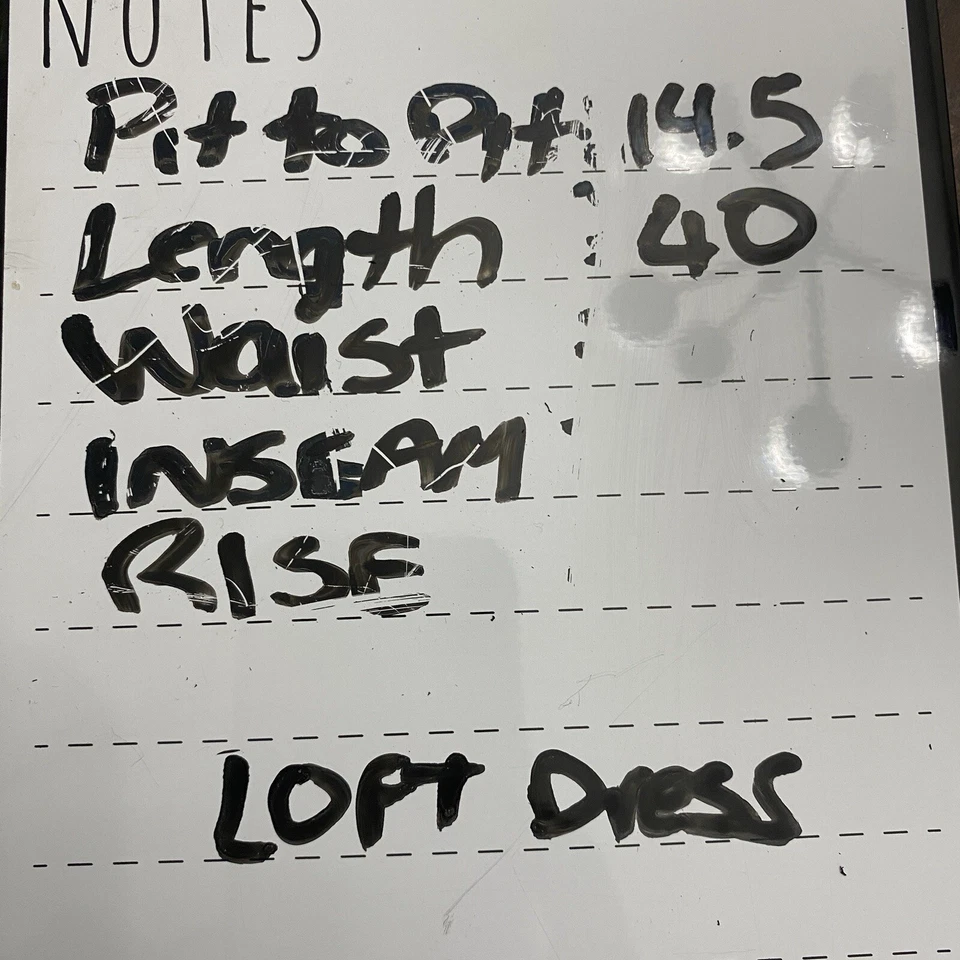 NOTES
Pit to Pit: 14.5
Length : 40
Waist :
INSEAM
RISE
LOFT Dress